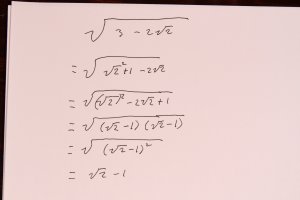 √(3 - 2√2)
= √(√2² + 1 - 2√2)
= √((√2)² - 2√2 + 1)
= √((√2 - 1) (√2 - 1))
= √((√2 - 1)²)
= √2 - 1